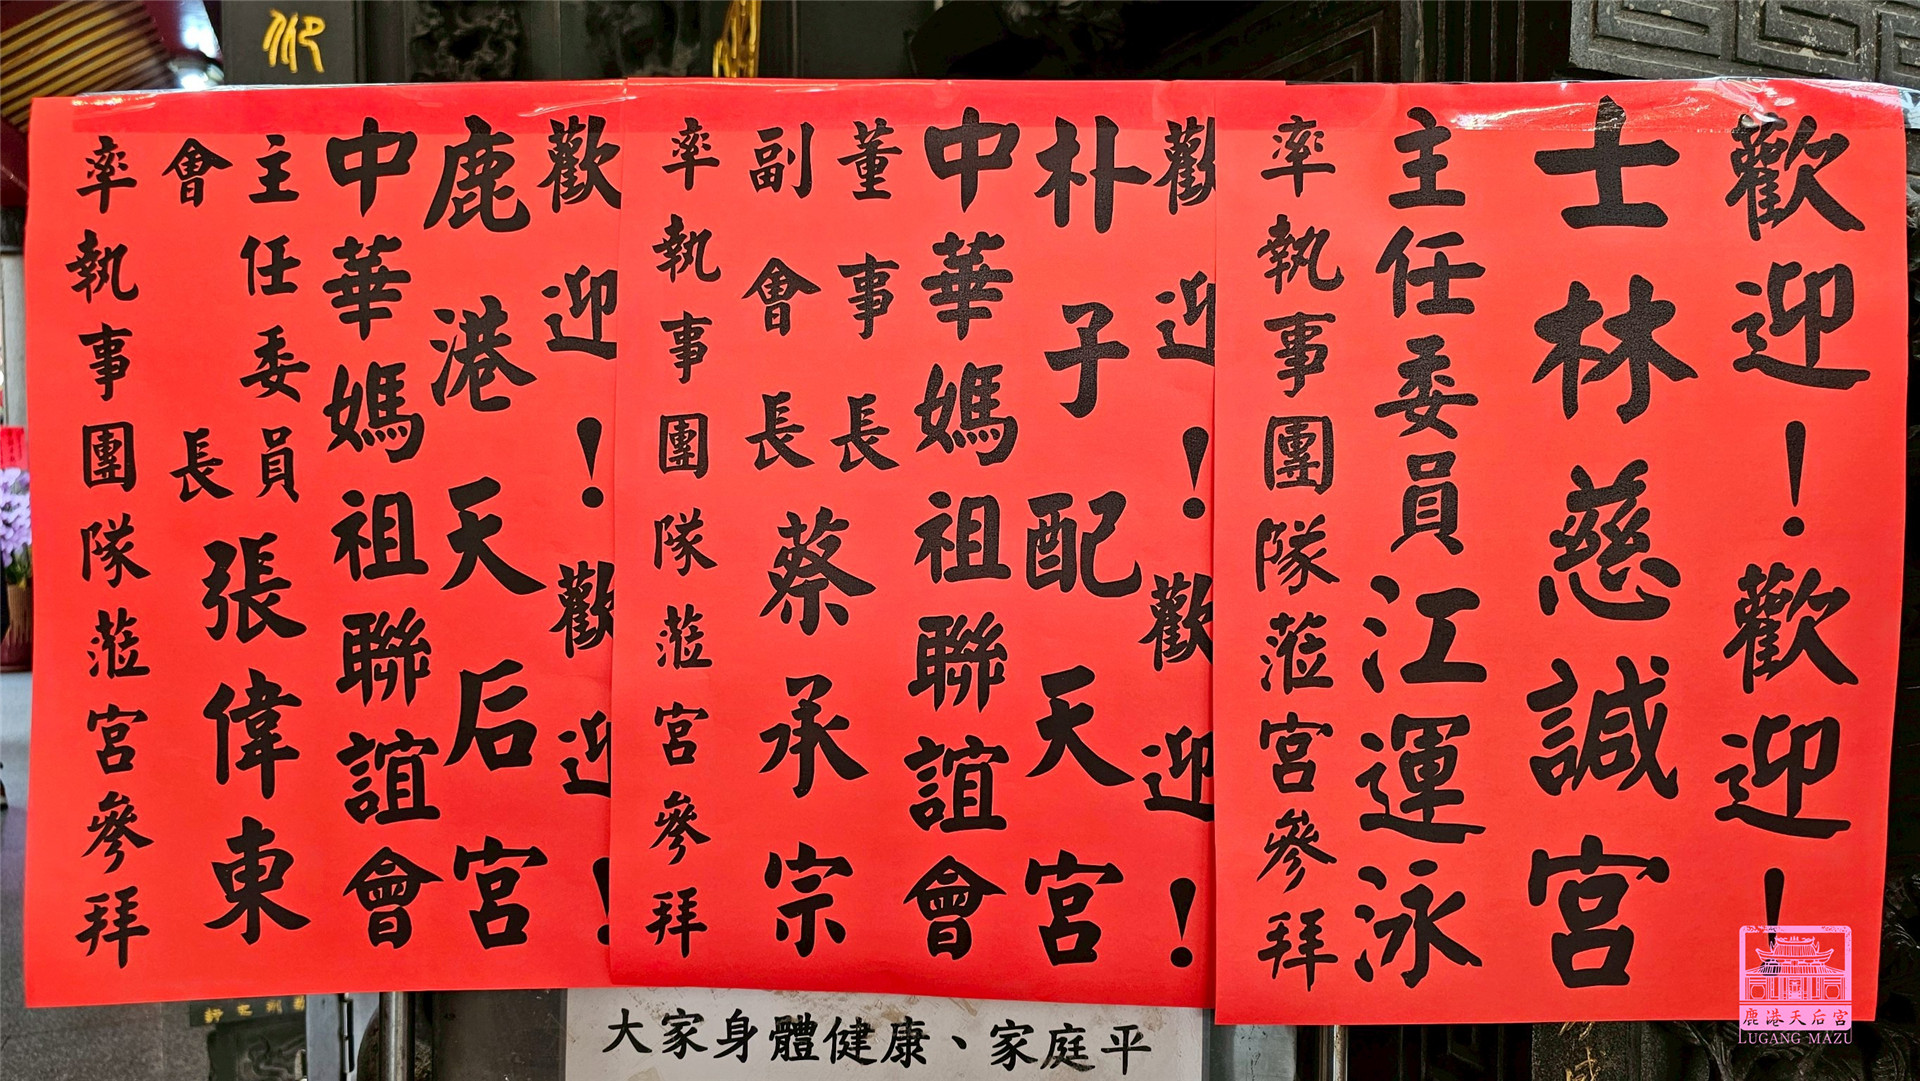 歡迎！歡迎！
士林慈諴宮
主任委員江運泳
率執事團隊蒞宮參拜
歡迎！歡迎！
朴子配天宮
中華媽祖聯誼會
董事長
副會長
蔡承宗
率執事團隊蒞宮參拜
歡迎！歡迎！
鹿港天后宮
中華媽祖聯誼會
主任委員
會長
張偉東
率執事團隊蒞宮參拜
大家身體健康、家庭平
鹿港天后宮
LUGANG MAZU